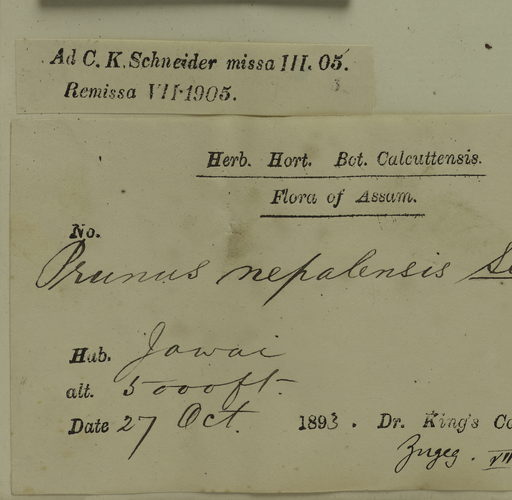 Ad C. K. Schneider missa III. 05.
Remissa VII·1905.
Herb. Hort. Bot. Calcuttensis.
Flora of Assam.
No.
Prunus nepalensis
Hab. Jowai
alt. 5000ft.
Date 27 Oct. 1893. Dr. King's